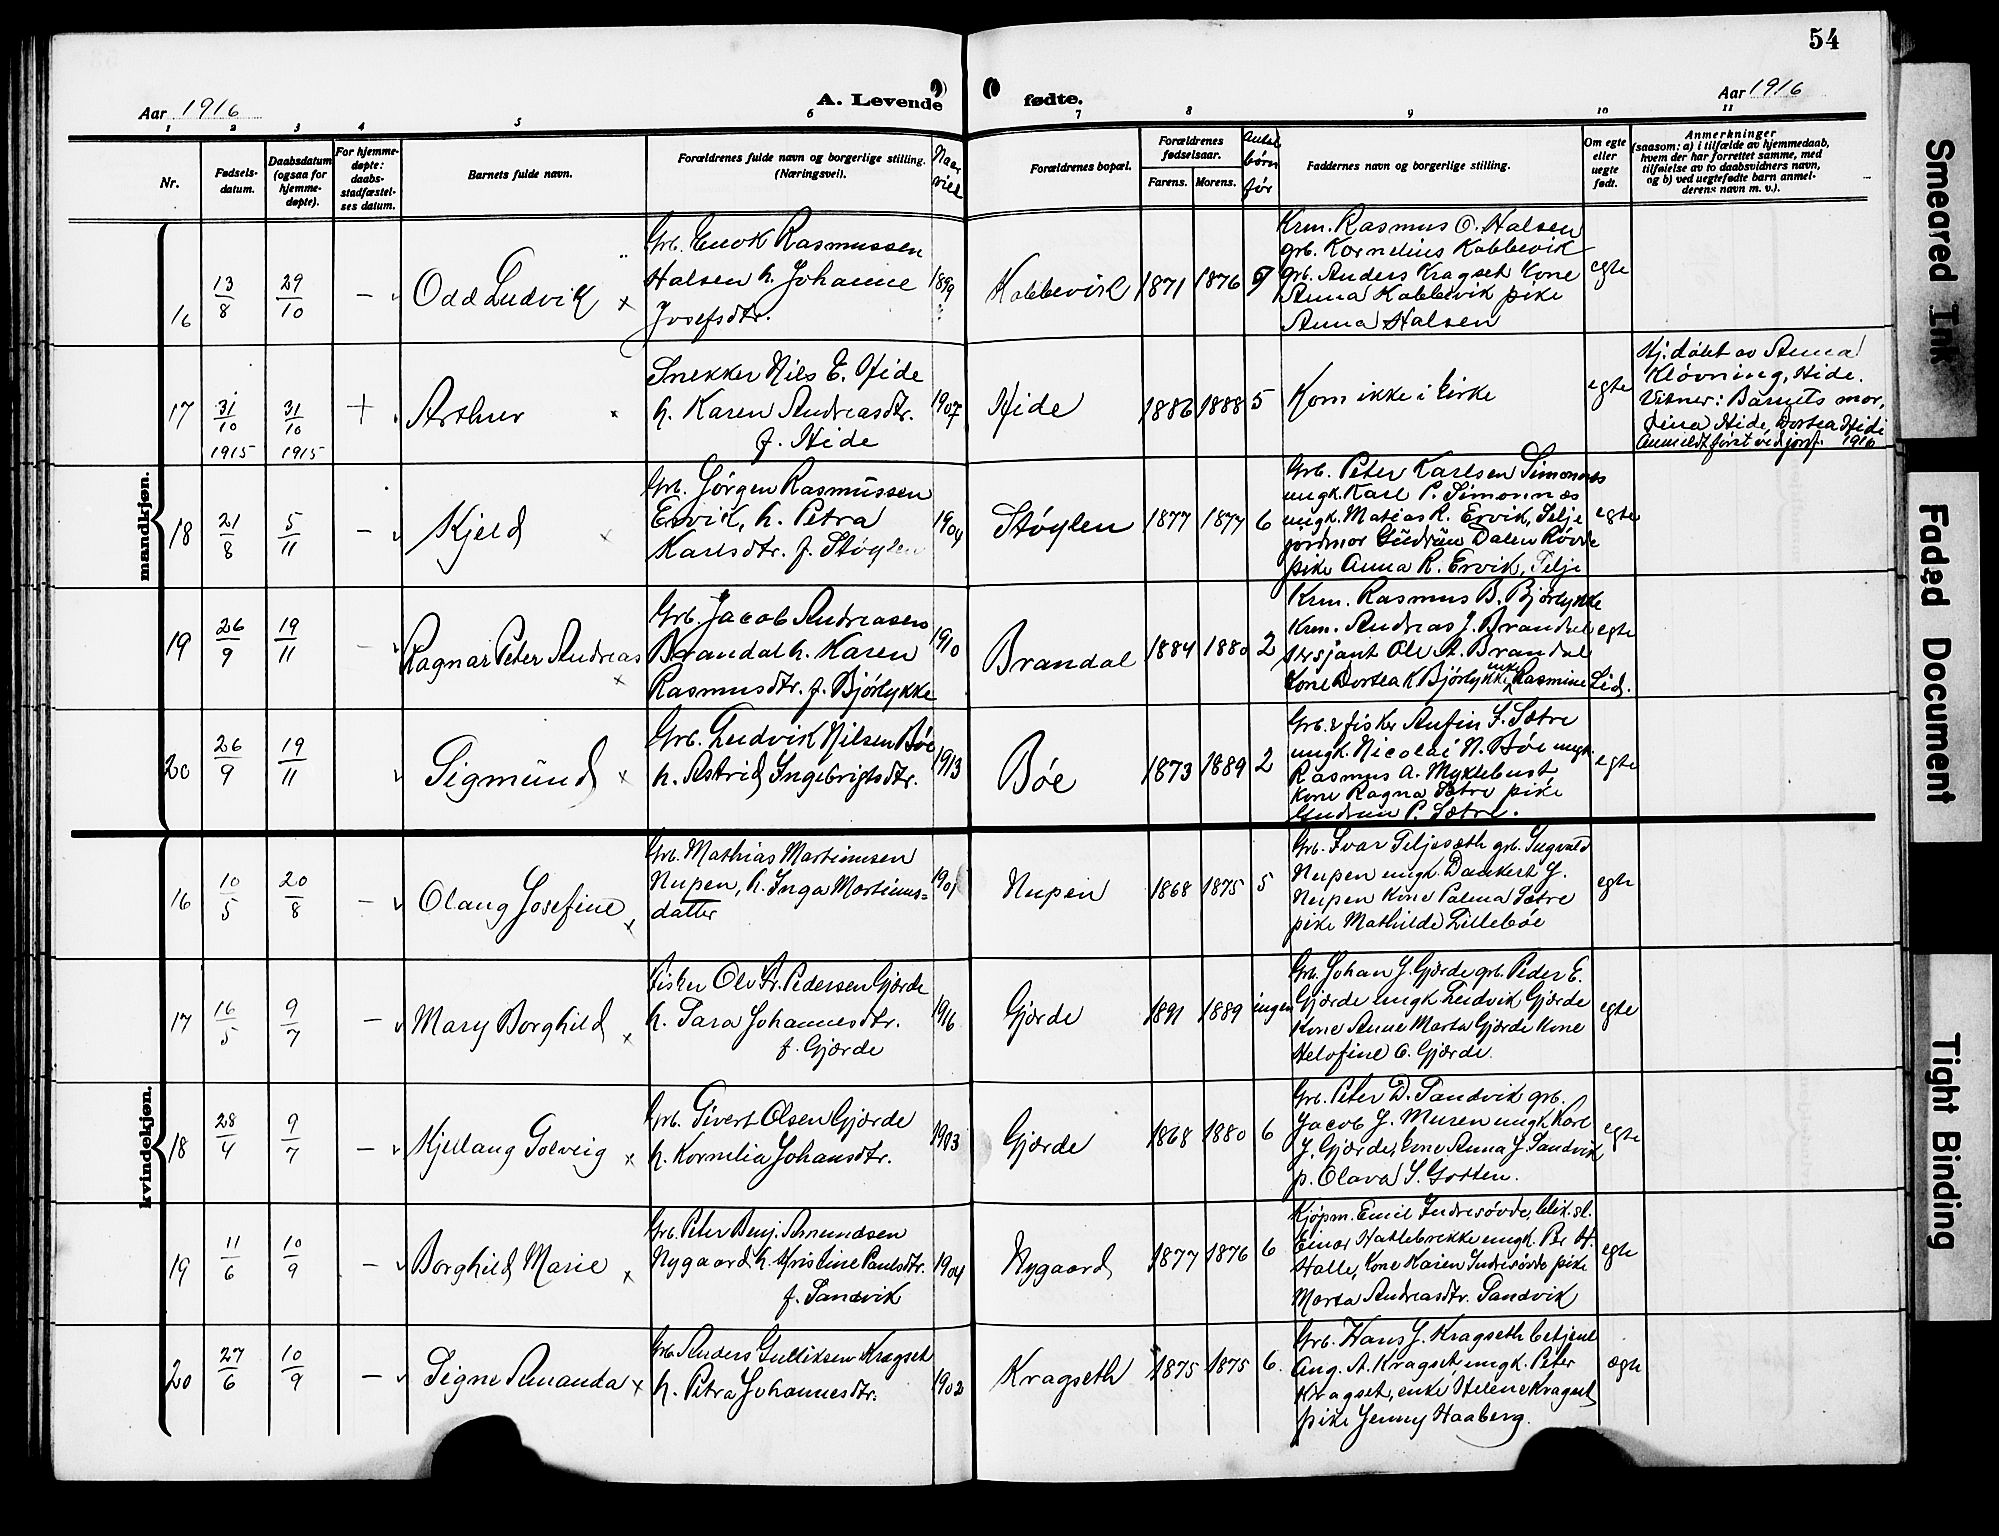 54
Aar 1916
A. Levende fødte.
Aar 1916
1 2 3 4 5 6 7 8 9 10 11
Nr.
Fødsels-
datum.
Daabsdatum
(ogsaa for
hjemme-
døpte).
For hjemme-
døpte:
daabs-
stadfæstel-
ses datum.
Barnets fulde navn.
Forældrenes fulde navn og borgerlige stilling.
(Næringsvei).
Naar
viet
Forældrenes bopæl.
Forældrenes
fødselsaar.
Farens. Morens.
Antal
børn
før
Faddernes navn og borgerlige stilling.
Om egte
eller
uegte
født.
Anmerkninger
(saasom: a) i tilfælde av hjemmedaab,
hvem der har forrettet samme, med
tilføielse av to daabsvidners navn,
og b) ved uegtefødte barn anmel-
derens navn m. v.).
mandkjøn.
16
13/8
29/10
–
Odd Ludvik ×
Grb. Enok Rasmussen
Halsen h. Johanne
Josefsdtr.
1899
?
Kobbevik
1871 1876 9
Krm. Rasmus O. Halsen
grb. Kornelius Kobbevik
grb. Anders Kragset kone
Anna Kobbevik pike
Anna Halsen
egte
17
31/10
1915
31/10
1915
+
Arthur
Snekker Nils E. Hide
h. Karen Andreasdtr.
f. Hide
1907
Hide
1886 1888 5
Kom ikke i kirke
egte
Hj.døbt av Anna
Kløvning, Hide.
Vitner: Barnets mor,
Dina Hide, Dortea Hide
Anmeldt først ved jorf. 1916
18
21/8
5/11
–
Kjeld ×
Grb. Jørgen Rasmussen
Ervik, h. Petra
Karlsdtr. f. Støylen
1904
Støylen
1877 1877 6
Grb. Peter Karlsen Simonnes
ungk. Karl P. Simonnæs
ungk. Matias R. Ervik, Selje
jordmor Gudrun Dalen Rovde
pike Anna R. Ervik, Selje
egte
19
26/9
19/11
–
Ragnar Peter Andreas ×
Grb. Jacob Andreasen
Brandal h. Karen
Rasmusdtr. f. Bjørlykke
1910
Brandal
1884 1880 2
Krm. Rasmus B. Bjørlykke
Krm. Andreas J. Brandal
sersjant Ole A. Brandal
kone Dortea K Bjørlykke enke Rasmine Eid.
egte
20
26/9
19/11
Sigmund ×
Grb. Ludvik Nilsen Bøe
h. Astrid Ingebrigtsdtr.
1913
Bøe
1873 1889 2
Grb. & fisker Anfin S. Sætre
ungk. Nicolai N. Bøe ungk.
Rasmus A. Myklebust,
kone Ragna Sætre pike
Gudrun P. Sætre.
egte
kvindekjøn.
16
10/5
20/8
–
Olaug Josefine ×
Grb. Mathias Martinusen
Nupen, h. Inga Martinus=
datter
1901
Nupen
1868 1875 5
Grb. Ivar Seljesæth grb. Ingvald
Nupen ungk. Dankert J.
Nupen kone Palma Sætre
pike Mathilde Lillebøe
egte
17
16/5
9/7
–
Mary Borghild ×
Fisker Ole Fr. Pedersen Gjærde
h. Sara Johannesdtr.
f. Gjærde
1916
Gjærde
1891 1889 ingen
Grb. Johan J. Gjærde grb. Peder E.
Gjærde ungk Ludvik Gjærde
kone Anne Marta Gjærde kone
Helofine O. Gjærde.
egte
18
28/4
9/7
–
Kjellaug Solveig ×
Grb. Sivert Olsen Gjærde
h. Kornelia Johansdtr.
1903
Gjærde
1868 1880 6
Grb. Peter D. Sandvik grb.
Jacob J. Muren ungk Karl
J. Gjærde, kone Anna J. Sandvik
p. Olava S. Gotten.
egte
19
11/6
10/9
–
Borghild Marie ×
Grb. Peter Benj. Amundsen
Nygaard h. Kristine Paulsdtr.
f. Sandvik
1904
Nygaard
1877 1876 6
Kjøpm. Emil Indresøvde, blik.sl.
Einar Hatlebrekke ungk. Per H.
Halle, kone Karen Indresøvde pike
Marta Andreasdtr. Sandvik
egte
20
27/6
10/9
–
Signe Amanda ×
Grb. Anders Gulliksen Kragset
h. Petra Johannesdtr.
1902
Kragseth
1875 1875 6.
Grb. Hans J. Kragseth betjent
Aug. A. Kragset, ungk. Peter
Kragset, enke Helene Kragset
pike Jenny Haaberg.
egte
Smeared Ink
Faded Document
Tight Binding